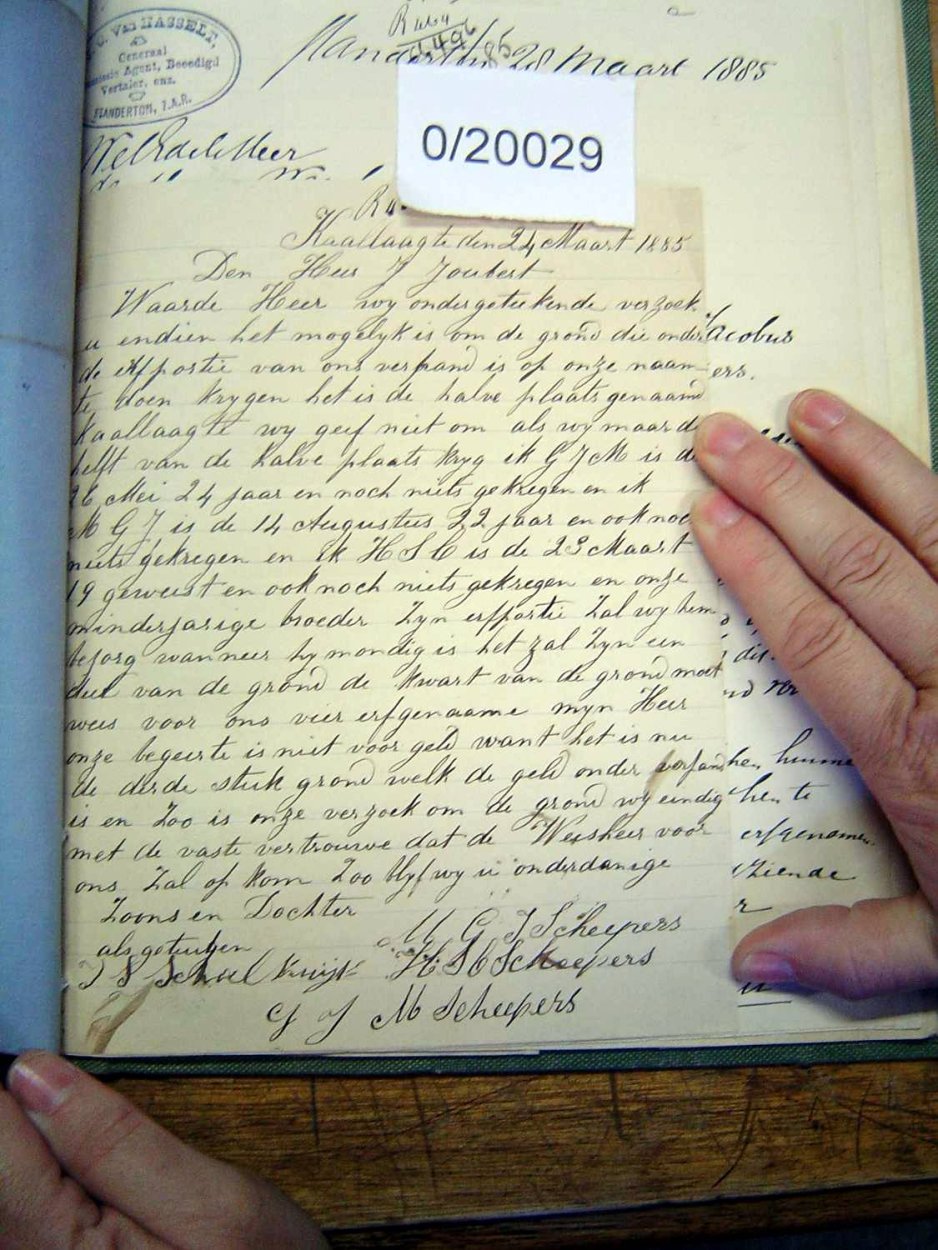 VAN HASSELT,
Generaal
Agent, Beeedigd
Vertaler, enz.
STANDERTON, Z.A.R.
Standerton 28 Maart 1885
0/20029
WelEdele Heer
Kaallaagte den 24 Maart 1885
Den Heer J Joubert
Waarde Heer wy ondergeteekende verzoek
u endien het mogelyk is om de grond die onder
de erfportie van ons verpand is op onze naam
te doen krygen het is de halve plaats genaamd
Kaallaagte wy geef niet om als wy maar de
helft van de halve plaats kryg ik G J M is de
26 Mei 24 jaar en noch niets gekregen en ik
M G J is de 14 Augustus 22 jaar en ook noch
niets gekregen en ik H S C is de 23 Maart
19 geweest en ook noch niets gekregen en onze
minderjarige broeder zyn erfportie zal wy hem
besorg wanneer hy mondig is het zal zyn een
deel van de grond de kwart van de grond moet
wees voor ons vier erfgenaame myn Heer
onze begeerte is niet voor geld want het is nu
de derde stuk grond welk de geld onder verpand
is en zoo is onze verzoek om de grond wy eindig
met de vaste vertrouwe dat de Weesheer voor
ons zal op kom zoo blyf wy u onderdanige
Zoons en Dochter
als getuigen
M G J Scheepers
H S C Scheepers
G J M Scheepers
Jacobus
ers.
hen hunne
hen te
erfgenamen
ziende